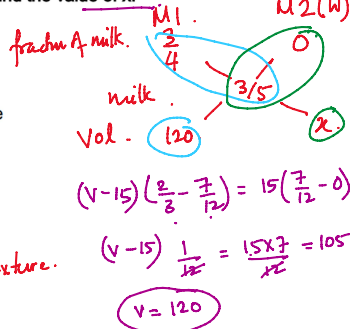 and the value of x.
M1. M2(W)
fraction of milk. 3/4 0
milk. 3/5
Vol. 120 x
(v-15)(2/3 - 7/12) = 15(7/12 - 0)
(v-15) 1/12 = 15x7/12 = 105
xture.
v = 120